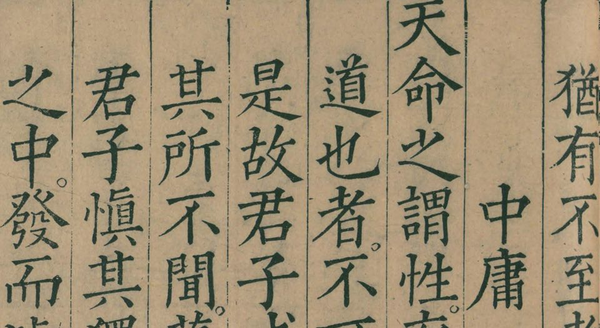 猶有不至者
中庸
天命之謂性。率
道也者。不可
是故君子戒
其所不聞。莫
君子慎其獨
之中。發而皆